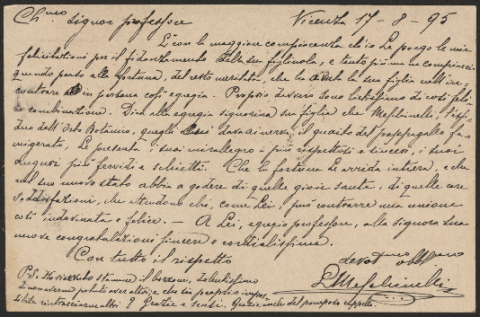 Ch.mo Signor professore Vicenza 17-8-95
È con la maggiore compiacenza ch'io Le porgo le mie
felicitazioni per il fidanzamento della sua figliuola, e tanto più me ne compiaccio
quando penso alla fortuna, del resto meritata, che ha avuto la sua figlia nell'in-
contrare in persona così egregia. Proprio davvero sono lietissimo di così feli-
ce combinazione. Dirà alla egregia signorina sua figlia che Meschinelli,
dell'Orto Botanico, quegli dava ai nervi, il quarto del pappagallo fa-
migerato, Le presenta i suoi mirallegro i più rispettosi e sinceri, i suoi
auguri più fervidi e schietti. Che la fortuna Le arrida intiera, e che
nel suo nuovo stato abbia a godere di quelle gioie sante, di quelle care
soddisfazioni, che attendono chi, come Lei, può contrarre una unione
così indovinata e felice. — A Lei, egregio professore, alla signora sua
nuove congratulazioni sincere e cordialissime.
Con tutto il rispetto devot.mo obbl.mo
L Meschinelli
P.S. Ho ricevuto stamane il
Grazie e scusi.